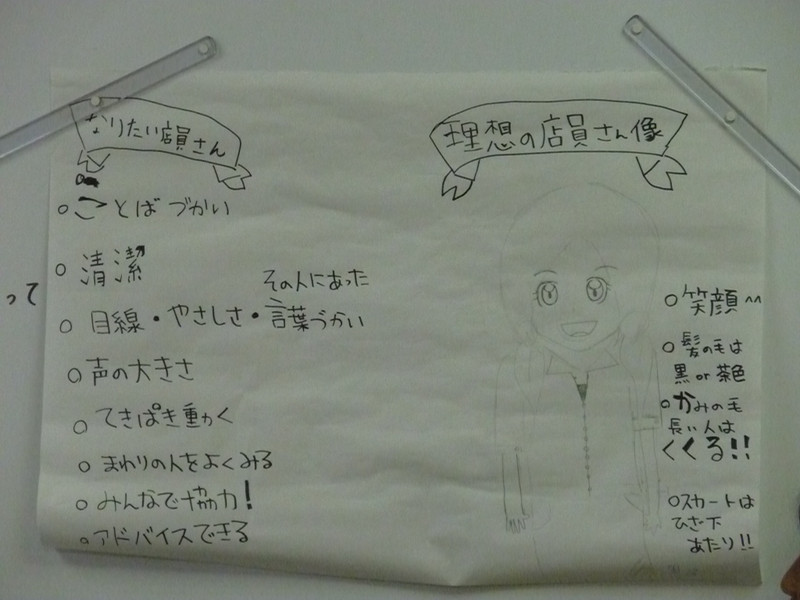 なりたい店員さん
○ことばづかい
○清潔
その人にあった
○目線・やさしさ・言葉づかい
○声の大きさ
○てきぱき動く
○まわりの人をよくみる
○みんなで協力!
○アドバイスできる
って
理想の店員さん像
○笑顔^^
○髪の毛は
黒or茶色
○かみの毛
長い人は
くくる!!
○スカートは
ひざ下
あたり!!